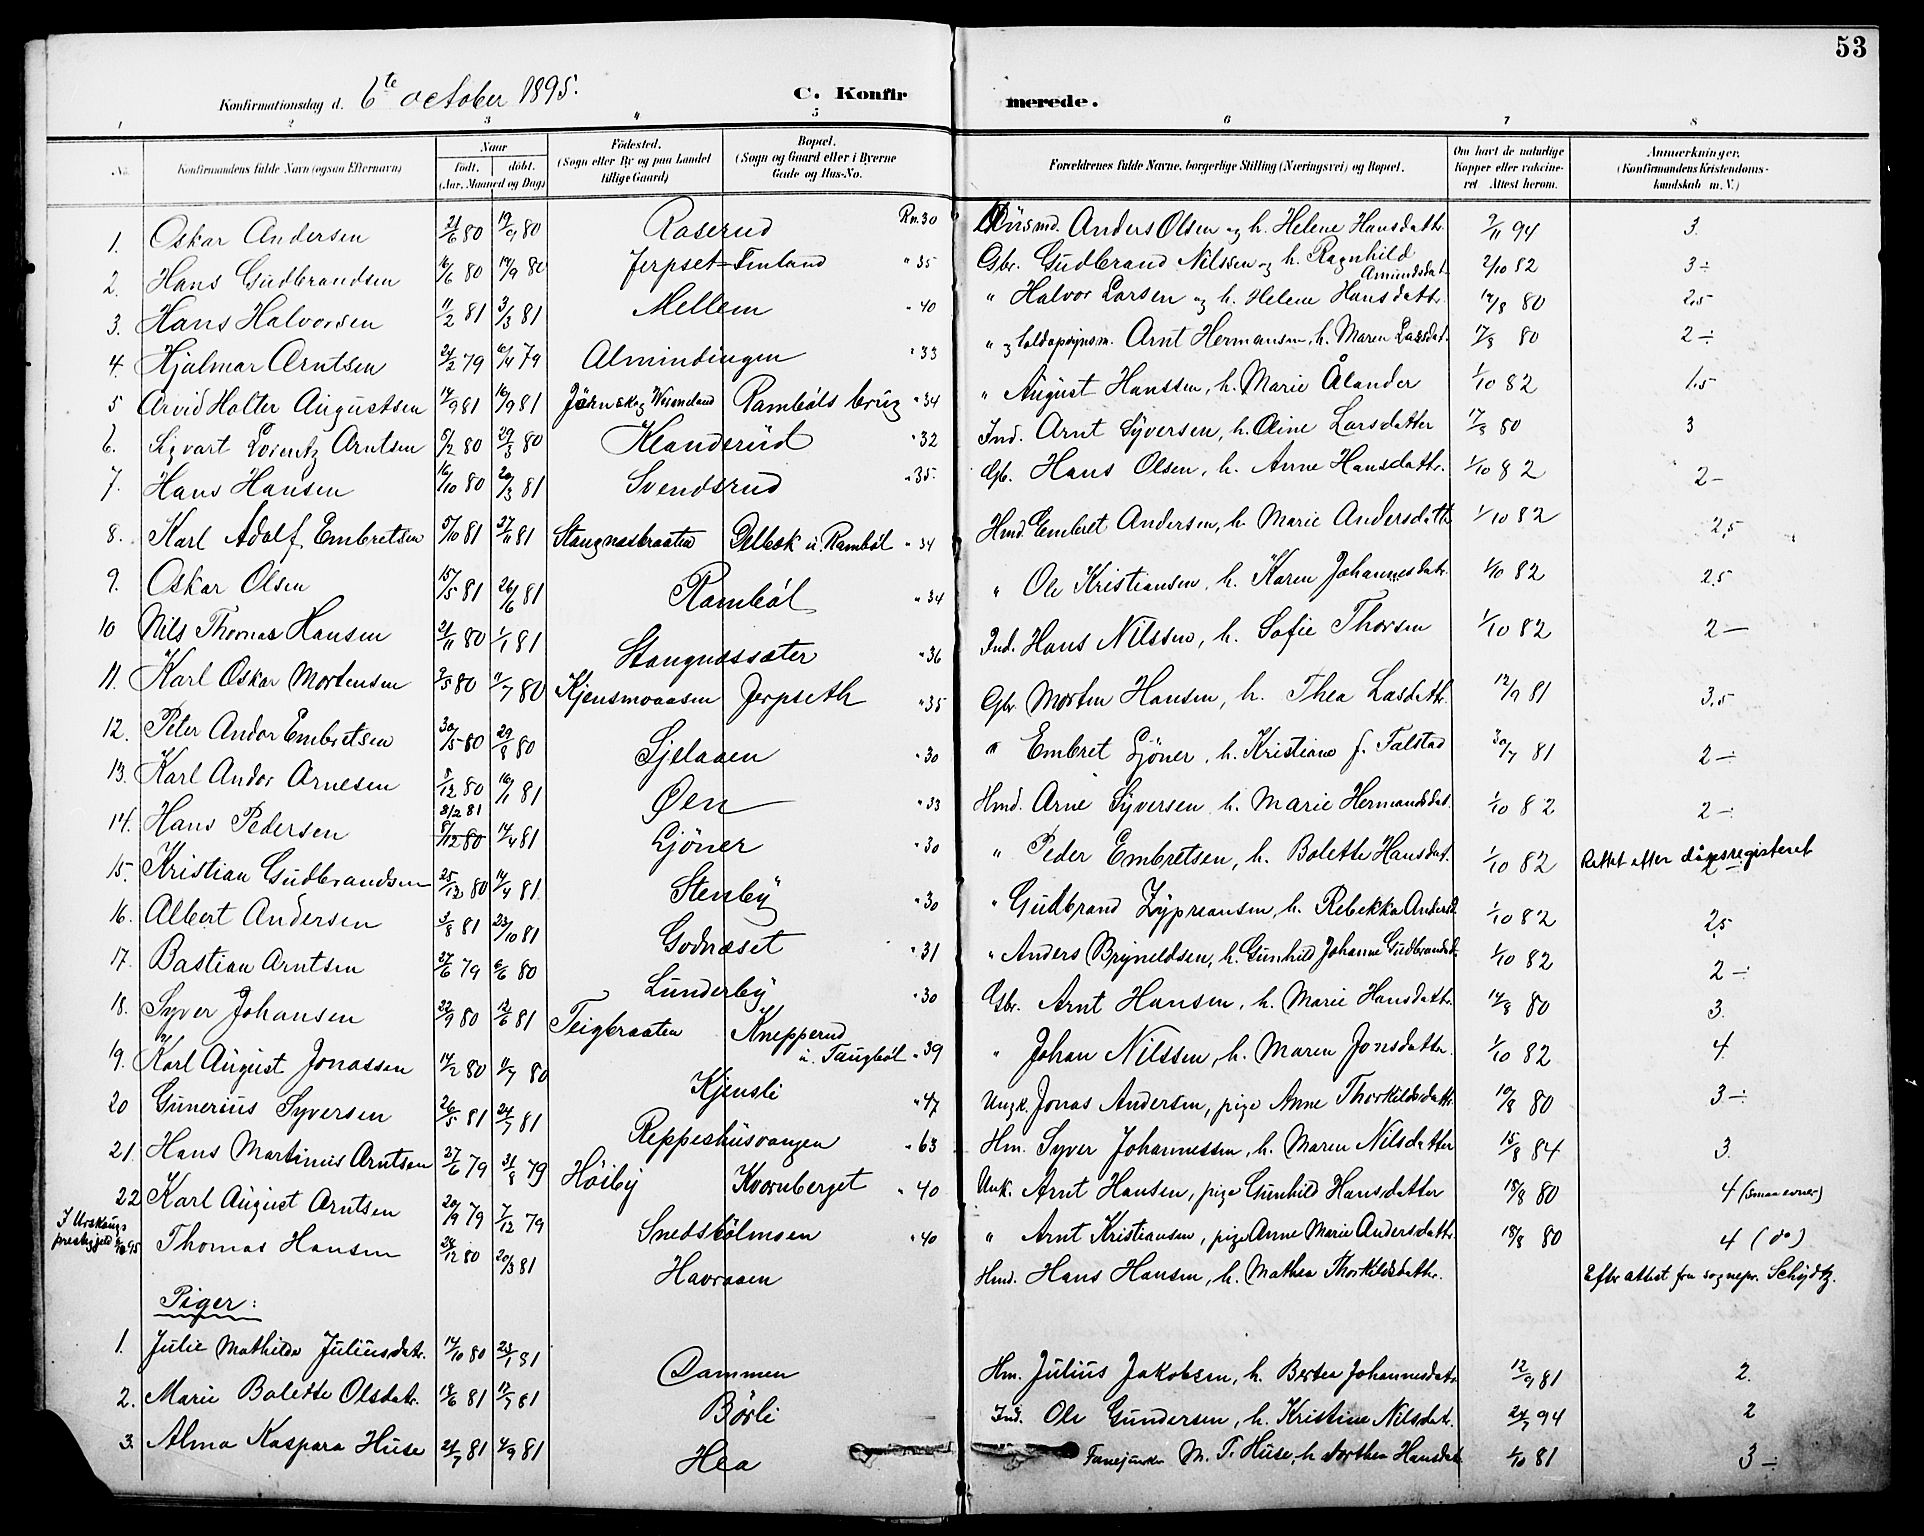 53
Konfirmationsdag d. 6te october 1895. C. Konfir merede.
1 2 3 4 5 6 7 8
No. Konfirmandens fulde Navn (ogsaa Efternavn) Naar født. døbt. (Aar, Maaned og Dag) Fødested. (Sogn eller By og paa Landet tillige Gaard) Bopæl. (Sogn og Gaard eller i Byerne Gade og Hus-No. Forældrenes fulde Navne, borgerlige Stilling (Næringsvei) og Bopæl. Om havt de naturlige Kopper eller vakcineret. Attest herom. Anmærkninger. (Konfirmandens Kristendomskundskab m. V.)
1. Oskar Andersen 21/6 80 19/9 80 Roserud Rn. 30 Husmd. Anders Olsen og h. Helene Hansdatr. 2/11 94 3.
2. Hans Gudbrandsen 16/6 80 19/9 80 Jerpset-Finland " 35 Gbr. Gudbrand Nilssen og h. Ragnhild Amundsdat. 2/10 82 3 ÷
3. Hans Halvorsen 11/2 81 3/3 81 Mellem " 40 " Halvor Larsen og h. Helene Hansdattr. 14/8 80 2,5
4. Hjalmar Arntsen 21/2 79 6/4 79 Almindingen " 33 " og Arnt Hermansen, h. Maren Larsdat. 17/8 80 2 ÷
5 Arvid Holter Augustsen 14/9 81 16/9 81 Järnskog Wermeland Rambøls brug " 34 " August Hanssen, h. Marie Ålander 1/10 82 1,5
6. Sigvart Lorentz Arntsen 5/2 80 29/3 80 Klanderud " 32 Ind. Arnt Syversen, h. Oline Larsdatter 17/8 80 3
7. Hans Hansen 16/10 80 20/3 81 Svendsrud " 35. Gb. Hans Olsen, h. Anne Hansdattr. 1/10 82 2 -
8. Karl Adolf Embretsen 5/10 81 27/11 81 Stangnesbraaten Ølbæk u. Rambøl " 34 Hmd. Embret Andersen, h. Marie Andersdatt. 1/10 82 2,5
9. Oskar Olsen 15/5 81 26/6 81 Rambøl " 34 " Ole Kristiansen, h. Karen Johannesdatr. 1/10 82 2,5
10 Nils Thomas Hansen 21/11 80 1/1 81 Stangnessæter " 36 Ind. Hans Nilssen, h. Sofie Thorsen 1/10 82 2 -
11. Karl Oskar Mortensen 9/5 80 11/7 80 Kjensmoaasen Jerpseth " 35 Gbr. Morten Hansen, h. Thea Lasdatr. 12/9 81 3,5
12. Peter Andor Embretsen 30/5 80 29/8 80 Sjelaaen " 30 " Embret Gjöner, h. Kristiane f. Talstad 30/7 81 2 -
13. Karl Andor Arnesen 8/12 80 16/1 81 Øen " 33 Hmd. Arne Syversen, h. Marie Hermandsdat. 1/10 82 2 ÷
14. Hans Pedersen 8/2 81 8/12 80 14/4 81 Gjöner " 30 " Peder Embretsen, h. Bolette Hansdat. 1/10 82 Rettet efter dåpsregisteret 2
15. Kristian Gudbrandsen 25/12 80 14/4 81 Stenby " 30 " Gudbrand Zypreansen, h. Rebekka Andersd. 1/10 82 2,5
16. Albert Andersen 3/8 81 23/10 81 Godnæset " 31 " Anders Brynildsen, h. Gunhild Johanne Gudbrandsd. 1/10 82 2 ÷
17. Bastian Arntsen 27/6 79 6/6 80 Lunderby " 30 Gbr. Arnt Hansen, h. Marie Hansdattr. 14/8 80 3.
18. Syver Johansen 22/9 80 12/6 81 Teigbraaten Knepperud u. Taugbøl " 39 " Johan Nilssen, h. Maren Jonsdatter 1/10 82 4.
19. Karl August Jonassen 14/2 80 11/7 80 Kjensli " 47 Ungk. Jonas Andersen, pige Anne Thorkildsdattr. 10/8 80 3 ÷
20 Gunerius Syversen 26/5 81 24/7 81 Reppeshusvangen " 63 Hm. Syver Johannessen, h. Maren Nilsdatter 15/8 84 3.
21. Hans Martinius Arntsen 27/6 79 31/8 79 Høiby Kvernberget " 40 Unk. Arnt Hansen, pige Gunhild Hansdatter 18/8 80 4 (smaa evner)
22 Karl August Arntsen 20/9 79 7/12 79 Snedsbølmoen " 40 " Arnt Kristiansen, pige Anne Marie Andersdattr. 18/8 80 4 (do)
I Urskougs prestegjeld 95 Thomas Hansen 24/12 80 20/3 81 Havraaen Hmd. Hans Hansen, h. Mathea Thorkildsdattr. Efter attest fra sognepr. Schydtz.
Piger:
1. Julie Mathilde Juliusdatr. 14/10 80 23/1 81 Dammen Hm. Julius Jakobsen, h. Bertea Johannesdatr. 12/9 81 2.
2. Marie Bolette Olsdatr. 18/6 81 17/7 81 Børli Ind. Ole Gundersen, h. Kristine Nilsdat. 24/7 94 2
3. Alma Kaspara Huse 21/7 81 4/9 81 Hea Fanejunker M. T. Huse, h. Dorthea Hansdat. 1/10 81 3 ÷